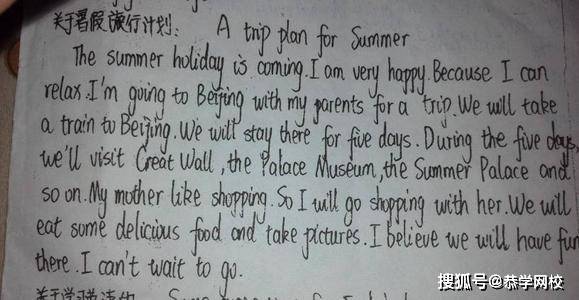 关于暑假旅行计划: A trip plan for Summer
The summer holiday is coming. I am very happy. Because I can
relax. I'm going to Beijing with my parents for a trip. We will take
a train to Beijing. We will stay there for five days. During the five days,
we'll visit Great Wall, the Palace Museum, the Summer Palace and
so on. My mother like shopping. So I will go shopping with her. We will
eat some delicious food and take pictures. I believe we will have fun
there. I can't wait to go.
搜狐号@恭学网校